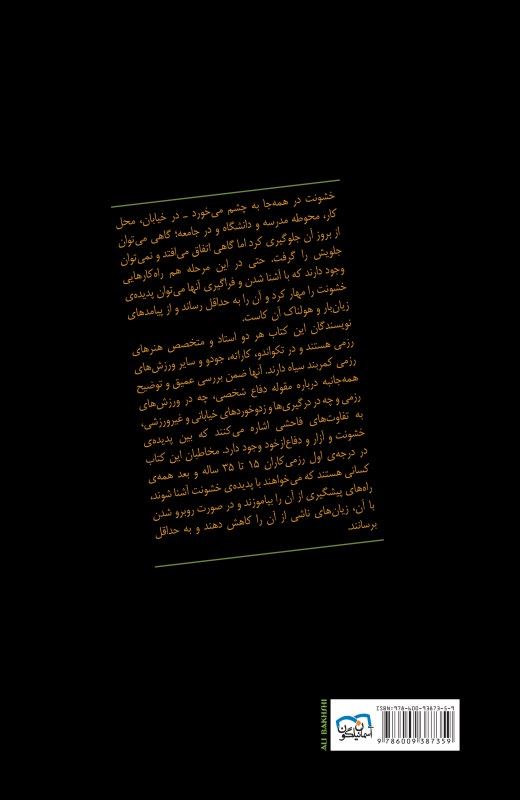 خشونت در همه‌جا به چشم می‌خورد ـ در خیابان، محل
کار، محوطه مدرسه و دانشگاه و در جامعه؛ گاهی می‌توان
از بروز آن جلوگیری کرد اما گاهی اتفاق می‌افتد و نمی‌توان
جلویش را گرفت. حتی در این مرحله هم راه‌کارهایی
وجود دارند که با آشنا شدن و فراگیری آنها می‌توان پدیده‌ی
خشونت را مهار کرد و آن را به حداقل رساند و از پیامدهای
زیان‌بار و هولناک آن کاست.
نویسندگان این کتاب هر دو استاد و متخصص هنرهای
رزمی هستند و در تکواندو، کاراته، جودو و سایر ورزش‌های
رزمی کمربند سیاه دارند. آنها ضمن بررسی عمیق و توضیح
همه‌جانبه درباره مقوله دفاع شخصی، چه در ورزش‌های
رزمی و چه در درگیری‌ها و زدوخوردهای خیابانی و غیرورزشی،
به تفاوت‌های فاحشی اشاره می‌کنند که بین پدیده‌ی
خشونت و آزار و دفاع‌ازخود وجود دارد. مخاطبان این کتاب
در درجه‌ی اول رزمی‌کاران ۱۵ تا ۳۵ ساله و بعد همه‌ی
کسانی هستند که می‌خواهند با پدیده‌ی خشونت آشنا شوند،
راه‌های پیشگیری از آن را بیاموزند و در صورت روبرو شدن
با آن، زیان‌های ناشی از آن را کاهش دهند و به حداقل
برسانند.
ALI BAKHSHI
آسمان نیلگون
ISBN:978-600-93873-5-9
9 786009 387359